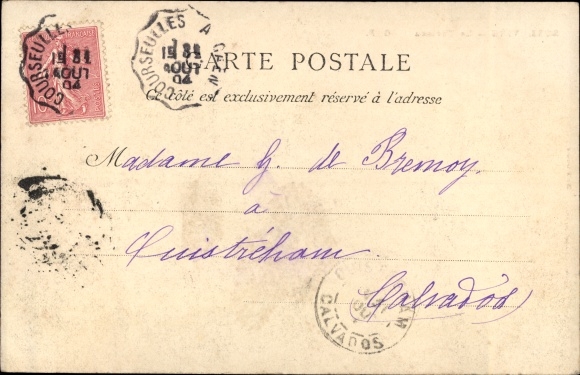 COURSEULLES
1E 31
AOUT
04
COURSEULLES A CAEN
1E 31
AOUT
04
CARTE POSTALE
Ce côté est exclusivement réservé à l'adresse
Madame G. de Bremoy.
à
Ouistréham
Calvados
CALVADOS